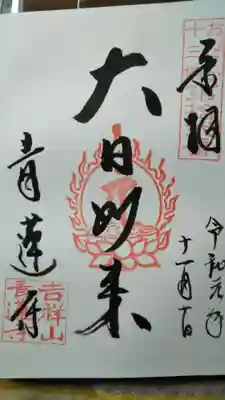 奉拝
令和元年
十一月十日
大日如来
吉祥山
青蓮寺
青蓮寺